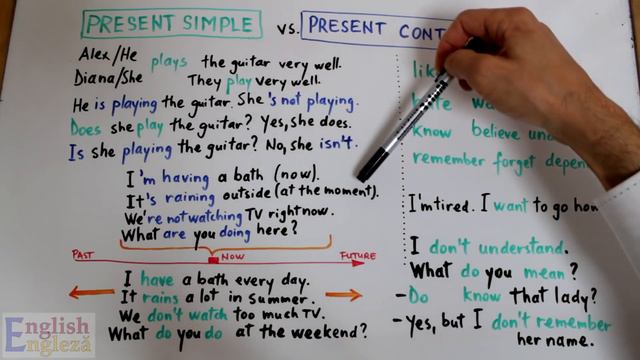 PRESENT SIMPLE vs. PRESENT CONT
Alex/He plays the guitar very well.
Diana/She They play very well.
He is playing the guitar. She 's not playing.
Does she play the guitar? Yes, she does.
Is she playing the guitar? No, she isn't.
I'm having a bath (now).
It's raining outside (at the moment).
We're not watching TV right now.
What are you doing here?
PAST NOW FUTURE
I have a bath every day.
It rains a lot in summer.
We don't watch too much TV.
What do you do at the weekend?
know believe
remember forget
I'm tired. I want to go
I don't understand.
What do you mean?
- Do know that lady?
- Yes, but I don't remember
her name.
English
Engleză